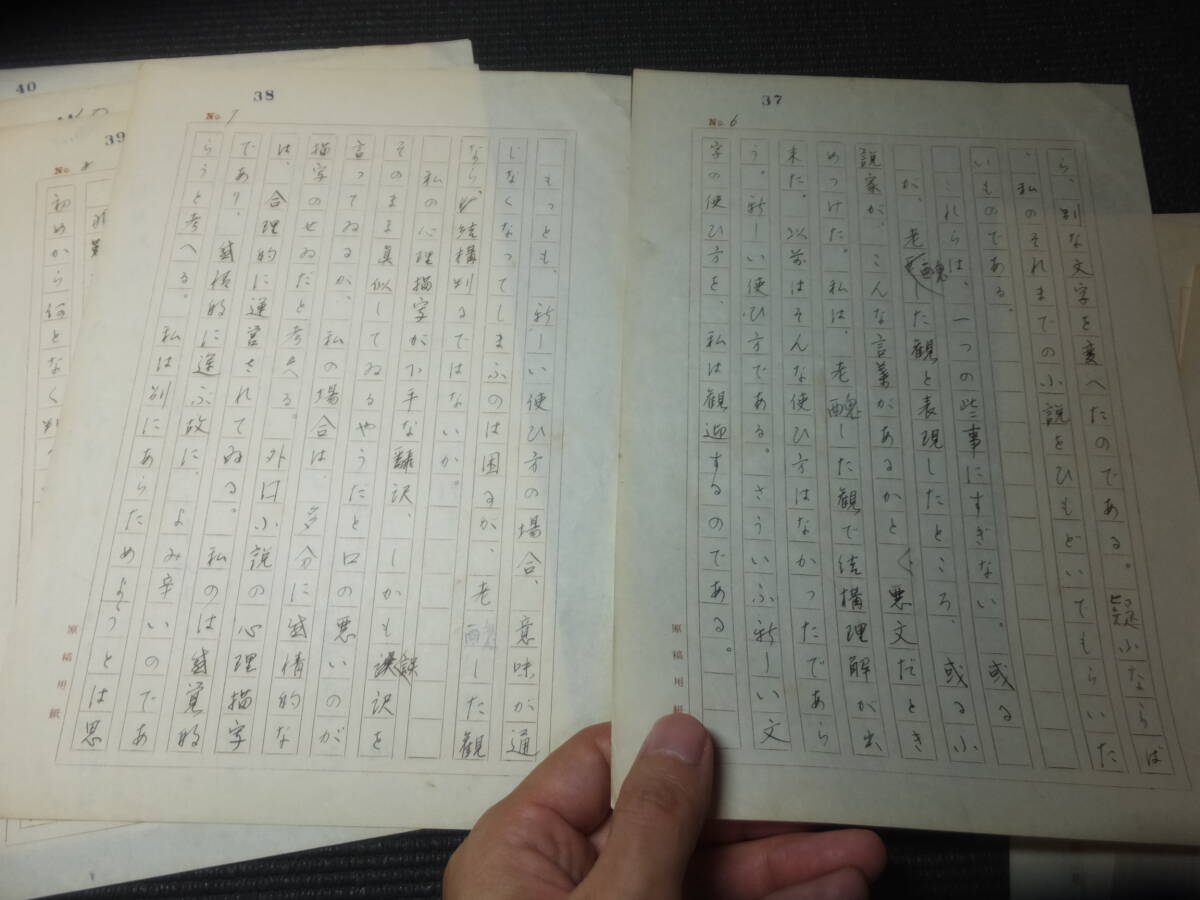 37
No. 6
ら、別な文字を変へたのである。疑ふならば
、私のそれまでの小説をひもどいてもらいた
いものである。
これらは、一つの些事にすぎない。或る
が、老醜した観と表現したところ、或る小
説家が、こんな言葉があるかと悪文だとき
めつけた。私は、老醜した観で結構理解が出
来た。以前はそんな使ひ方はなかったであら
う。新しい使ひ方である。さういふ新しい文
字の使ひ方を、私は観迎するのである。
原稿用紙
38
No. 7
もっとも、新しい使ひ方の場合、意味が通
じなくなってしまふのは困るが、老醜した観
なら、結構判るではないか。
私の心理描字が下手な翻訳、しかも誤訳を
そのまま真似してゐるやうだと口の悪いのが
言ってゐるが、私の場合は、多分に感情的な
描字のせゐだと考へる。外国小説の心理描字
は、合理的に運営されてゐる。私のは感覚的
であり、感情的に運ぶ故に、よみ辛いのであ
らうと考へる。私は別にあらためようとは思
原稿用紙
39
No. 8
初めから何となく判
40